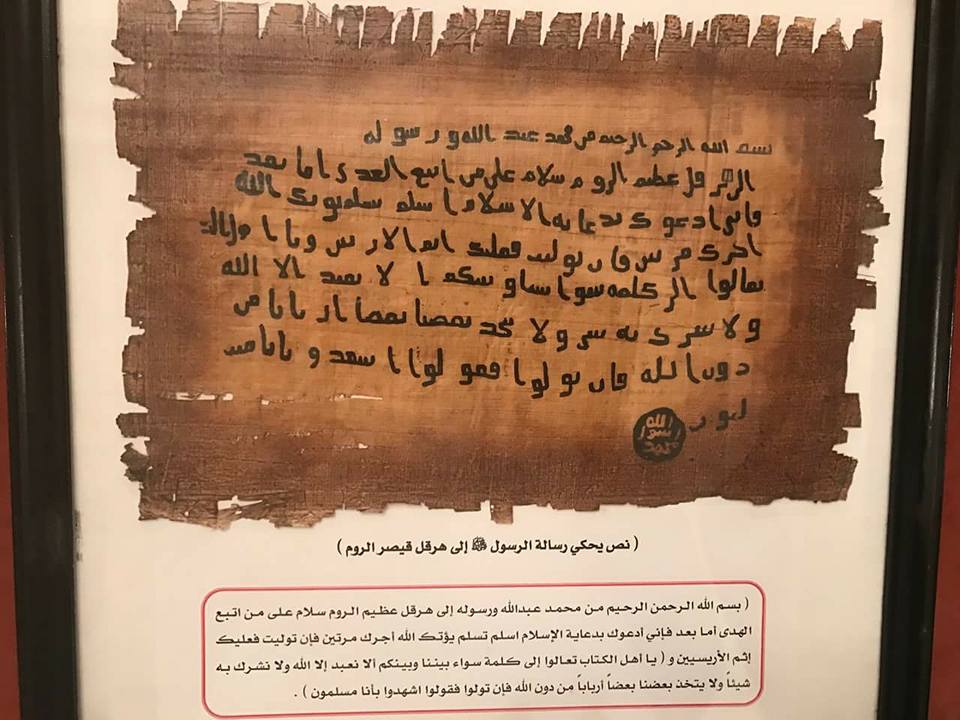 بسم الله الرحمن الرحيم من محمد عبد الله ورسوله
الى هرقل عظيم الروم سلام على من اتبع الهدى اما بعد
فانى ادعوك بدعاية الاسلام اسلم تسلم يوتك الله
اجرك مرتين فان توليت فعليك اثم الاريسين ويا اهل
تعالوا الى كلمة سوا بيننا وبينكم الا نعبد الا الله
ولا نشرك به شيا ولا يتخذ بعضنا بعضا اربابا من
دون الله فان تولوا فقولوا اشهدوا بانا مس
لمون
الله
رسول
محمد
( نص يحكي رسالة الرسول ﷺ إلى هرقل قيصر الروم )
( بسم الله الرحمن الرحيم من محمد عبدالله ورسوله إلى هرقل عظيم الروم سلام على من اتبع
الهدى أما بعد فإني أدعوك بدعاية الإسلام اسلم تسلم يؤتك الله أجرك مرتين فإن توليت فعليك
إثم الأريسيين و ( يا أهل الكتاب تعالوا إلى كلمة سواء بيننا وبينكم ألا نعبد إلا الله ولا نشرك به
شيئاً ولا يتخذ بعضنا بعضاً أرباباً من دون الله فإن تولوا فقولوا اشهدوا بأنا مسلمون ) .